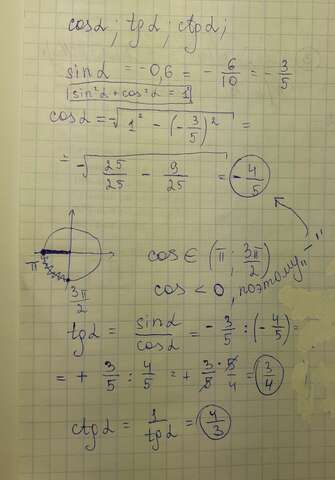 cosα; tgα; ctgα;
sinα = -0,6 = -6/10 = -3/5
sin²α + cos²α = 1
cosα = -√(1² - (-3/5)²) =
= -√(25/25 - 9/25) = -4/5
π
3π/2
cos ∈ (π; 3π/2)
cos < 0, поэтому "-"
tgα = sinα/cosα = -3/5 : (-4/5) =
= + 3/5 : 4/5 = + 3·5/5·4 = 3/4
ctgα = 1/tgα = 4/3